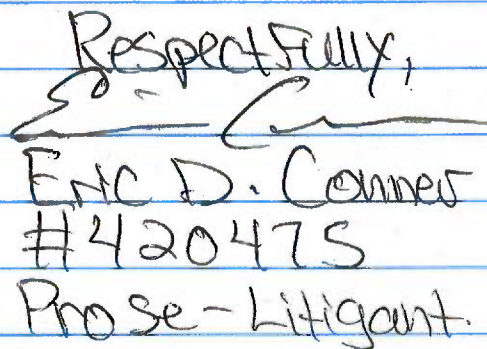 Respectfully,
Eric D. Conner
#420475
Prose-Litigant.